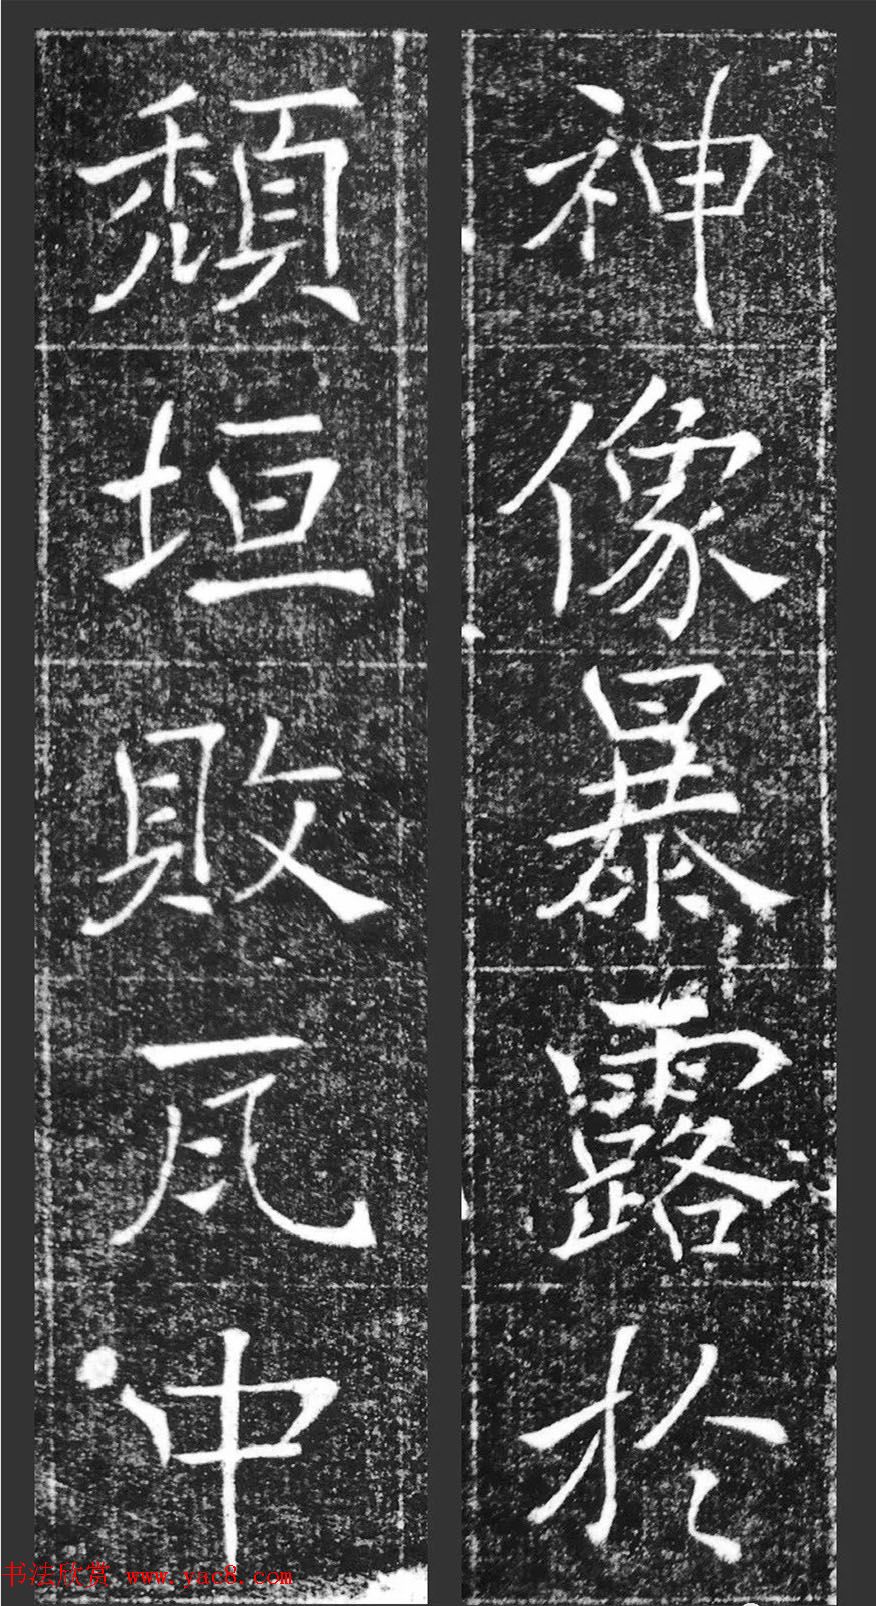 神像暴露於
頹垣敗瓦中
书法欣赏 www.yac8.com